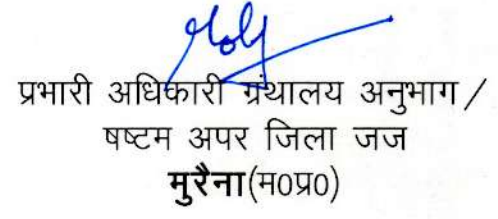 प्रभारी अधिकारी ग्रंथालय अनुभाग /
षष्टम अपर जिला जज
मुरैना(म0प्र0)